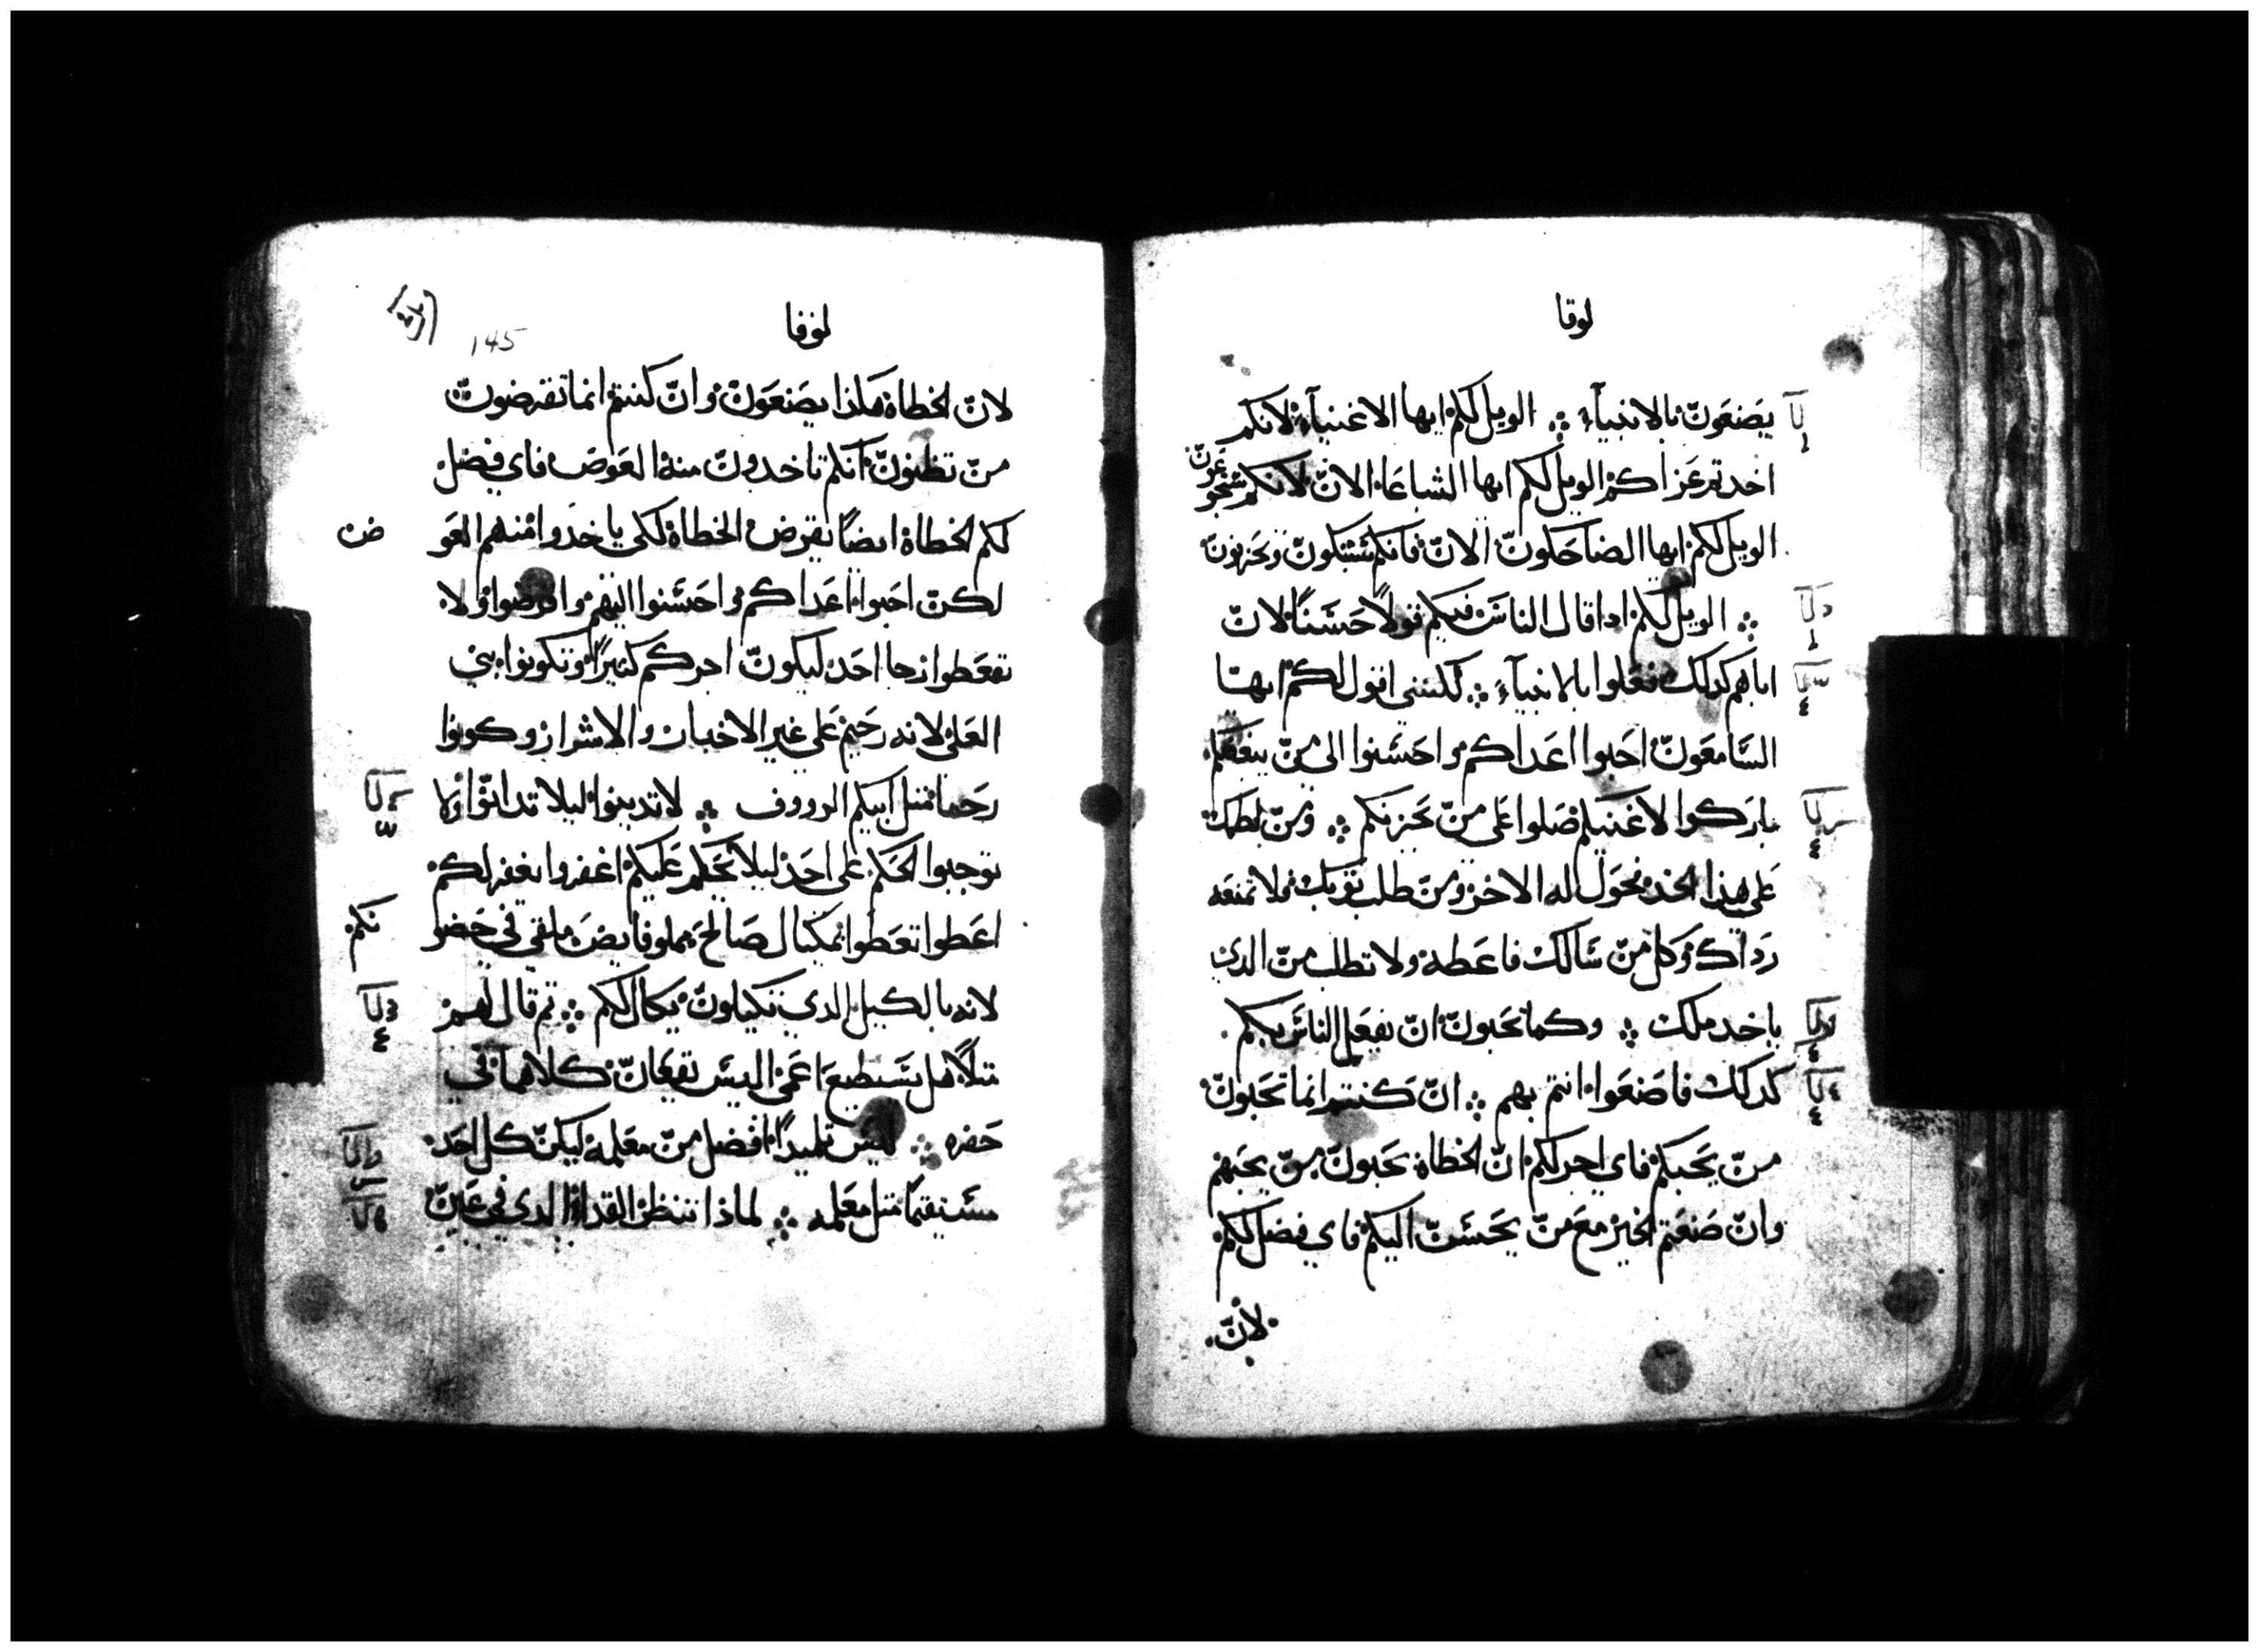 لوقا
يصنعون بالانبيآء ۞ الويل لكم ايها الاغنيآء لانكم
اخدتم عزاكم الويل لكم ايها الشباعا الان لانكم ستجوعون
الويل لكم ايها الضاحكون الان فانكم ستبكون وتحزنون
۞ الويل لكم ادا قال الناس فيكم قولاً حسناً لان
اباهم كدلك فعلوا بالانبيآء ۞ لكننى اقول لكم ايها
السامعون احبوا اعداكم واحسنوا الى من يبغضكم
باركوا لاعنيكم صلوا على من يحزنكم ۞ ومن لطمك
على هذا الخد فحول له الاخر ومن طلب ثوبك فلا تمنعه
رداك وكل من سالك فاعطه ولا تطلب من الدي
ياخد ملك ۞ وكما تحبون ان يفعل الناس بكم
كدلك فاصنعوا انتم بهم ۞ ان كنتم انما تحبون
من يحبكم فاي اجر لكم ان الخطاة يحبون من يحبهم
وان صنعتم الخير مع من يحسن اليكم فاي فضل لكم
لان
لوقا
145
لان الخطاة هكذا يصنعون وان كنتم انما تقرضون
من تظنون انكم تاخدون منه العوض فاي فضل
لكم الخطاة ايضاً تقرض الخطاة لكي ياخدوا منهم العوض
لكن احبوا اعداكم واحسنوا اليهم واقرضوا ولا
تقطعوا رجا احد ليكون اجركم كثيراً وتكونوا بني
العلي لانه رحيم على غير الاخيار والاشرار وكونوا
رحما مثل ابيكم الرووف ۞ لا تدينوا ليلا تدانوا ولا
توجبوا الحكم على احد ليلا يحكم عليكم اغفروا يغفر لكم
اعطوا تعطوا بمكيال صالح مملو فايض ملقى في حضنكم
لانه بالكيل الدي تكيلون يكال لكم ۞ تم قال لهم
متلاً هل يستطيع اعمى اليس يقعان كلاهما في
حفره ۞ ليس تلميداً افضل من معلمه ليكن كل احد
مستقيماً متل معلمه ۞ لماذا تنظر القداة الدى في عين